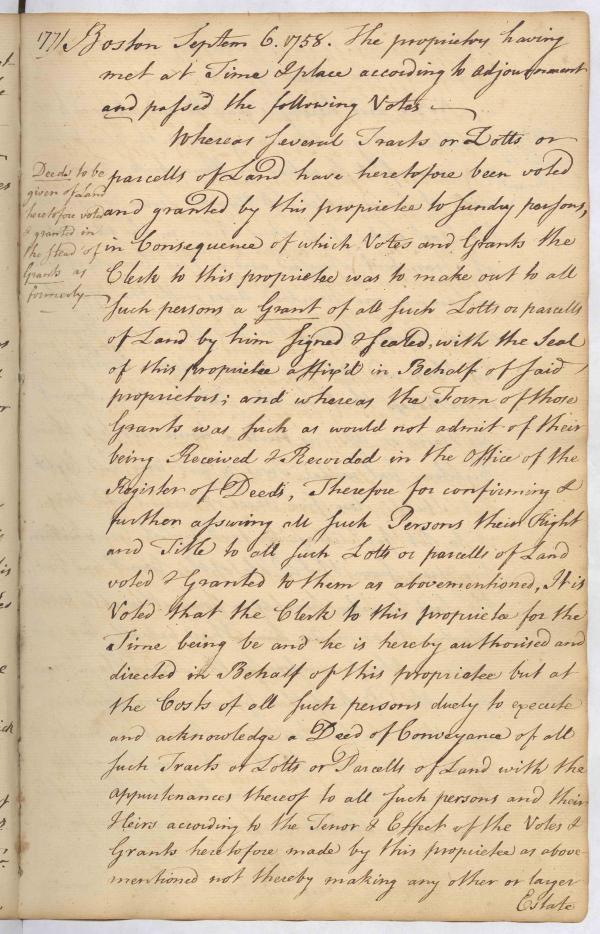 1771
Boston Septem 6. 1758. The proprietors having
met at Time & place according to adjournment
and passed the following Votes
Whereas several Tracts or Lotts or
parcells of Land have heretofore been voted
and granted by this proprietee to sundry persons,
in Consequence of which Votes and Grants the
Clerk to this proprietee was to make out to all
such persons a Grant of all such Lotts or parcells
of Land by him signed & sealed, with the Seal
of this proprietee affix'd in Behalf of said
proprietors; and whereas the Form of those
Grants was such as would not admit of their
being Received & Recorded in the Office of the
Register of Deeds, Therefore for confirming &
further assuring all such Persons their Right
and Title to all such Lotts or parcells of Land
voted & Granted to them as abovementioned, It is
Voted that the Clerk to this proprietee for the
Time being be and he is hereby authorised and
directed in Behalf of this proprietee but at
the Costs of all such persons duely to execute
and acknowledge a Deed of Conveyance of all
such Tracts or Lotts or Parcells of Land with the
appurtenances thereof to all such persons and their
Heirs according to the Tenor & Effect of the Votes &
Grants heretofore made by this proprietee as above-
mentioned not thereby making any other or larger
Estate
Deeds to be
given of Land
heretofore voted
& granted in
the stead of
Grants as
formerly